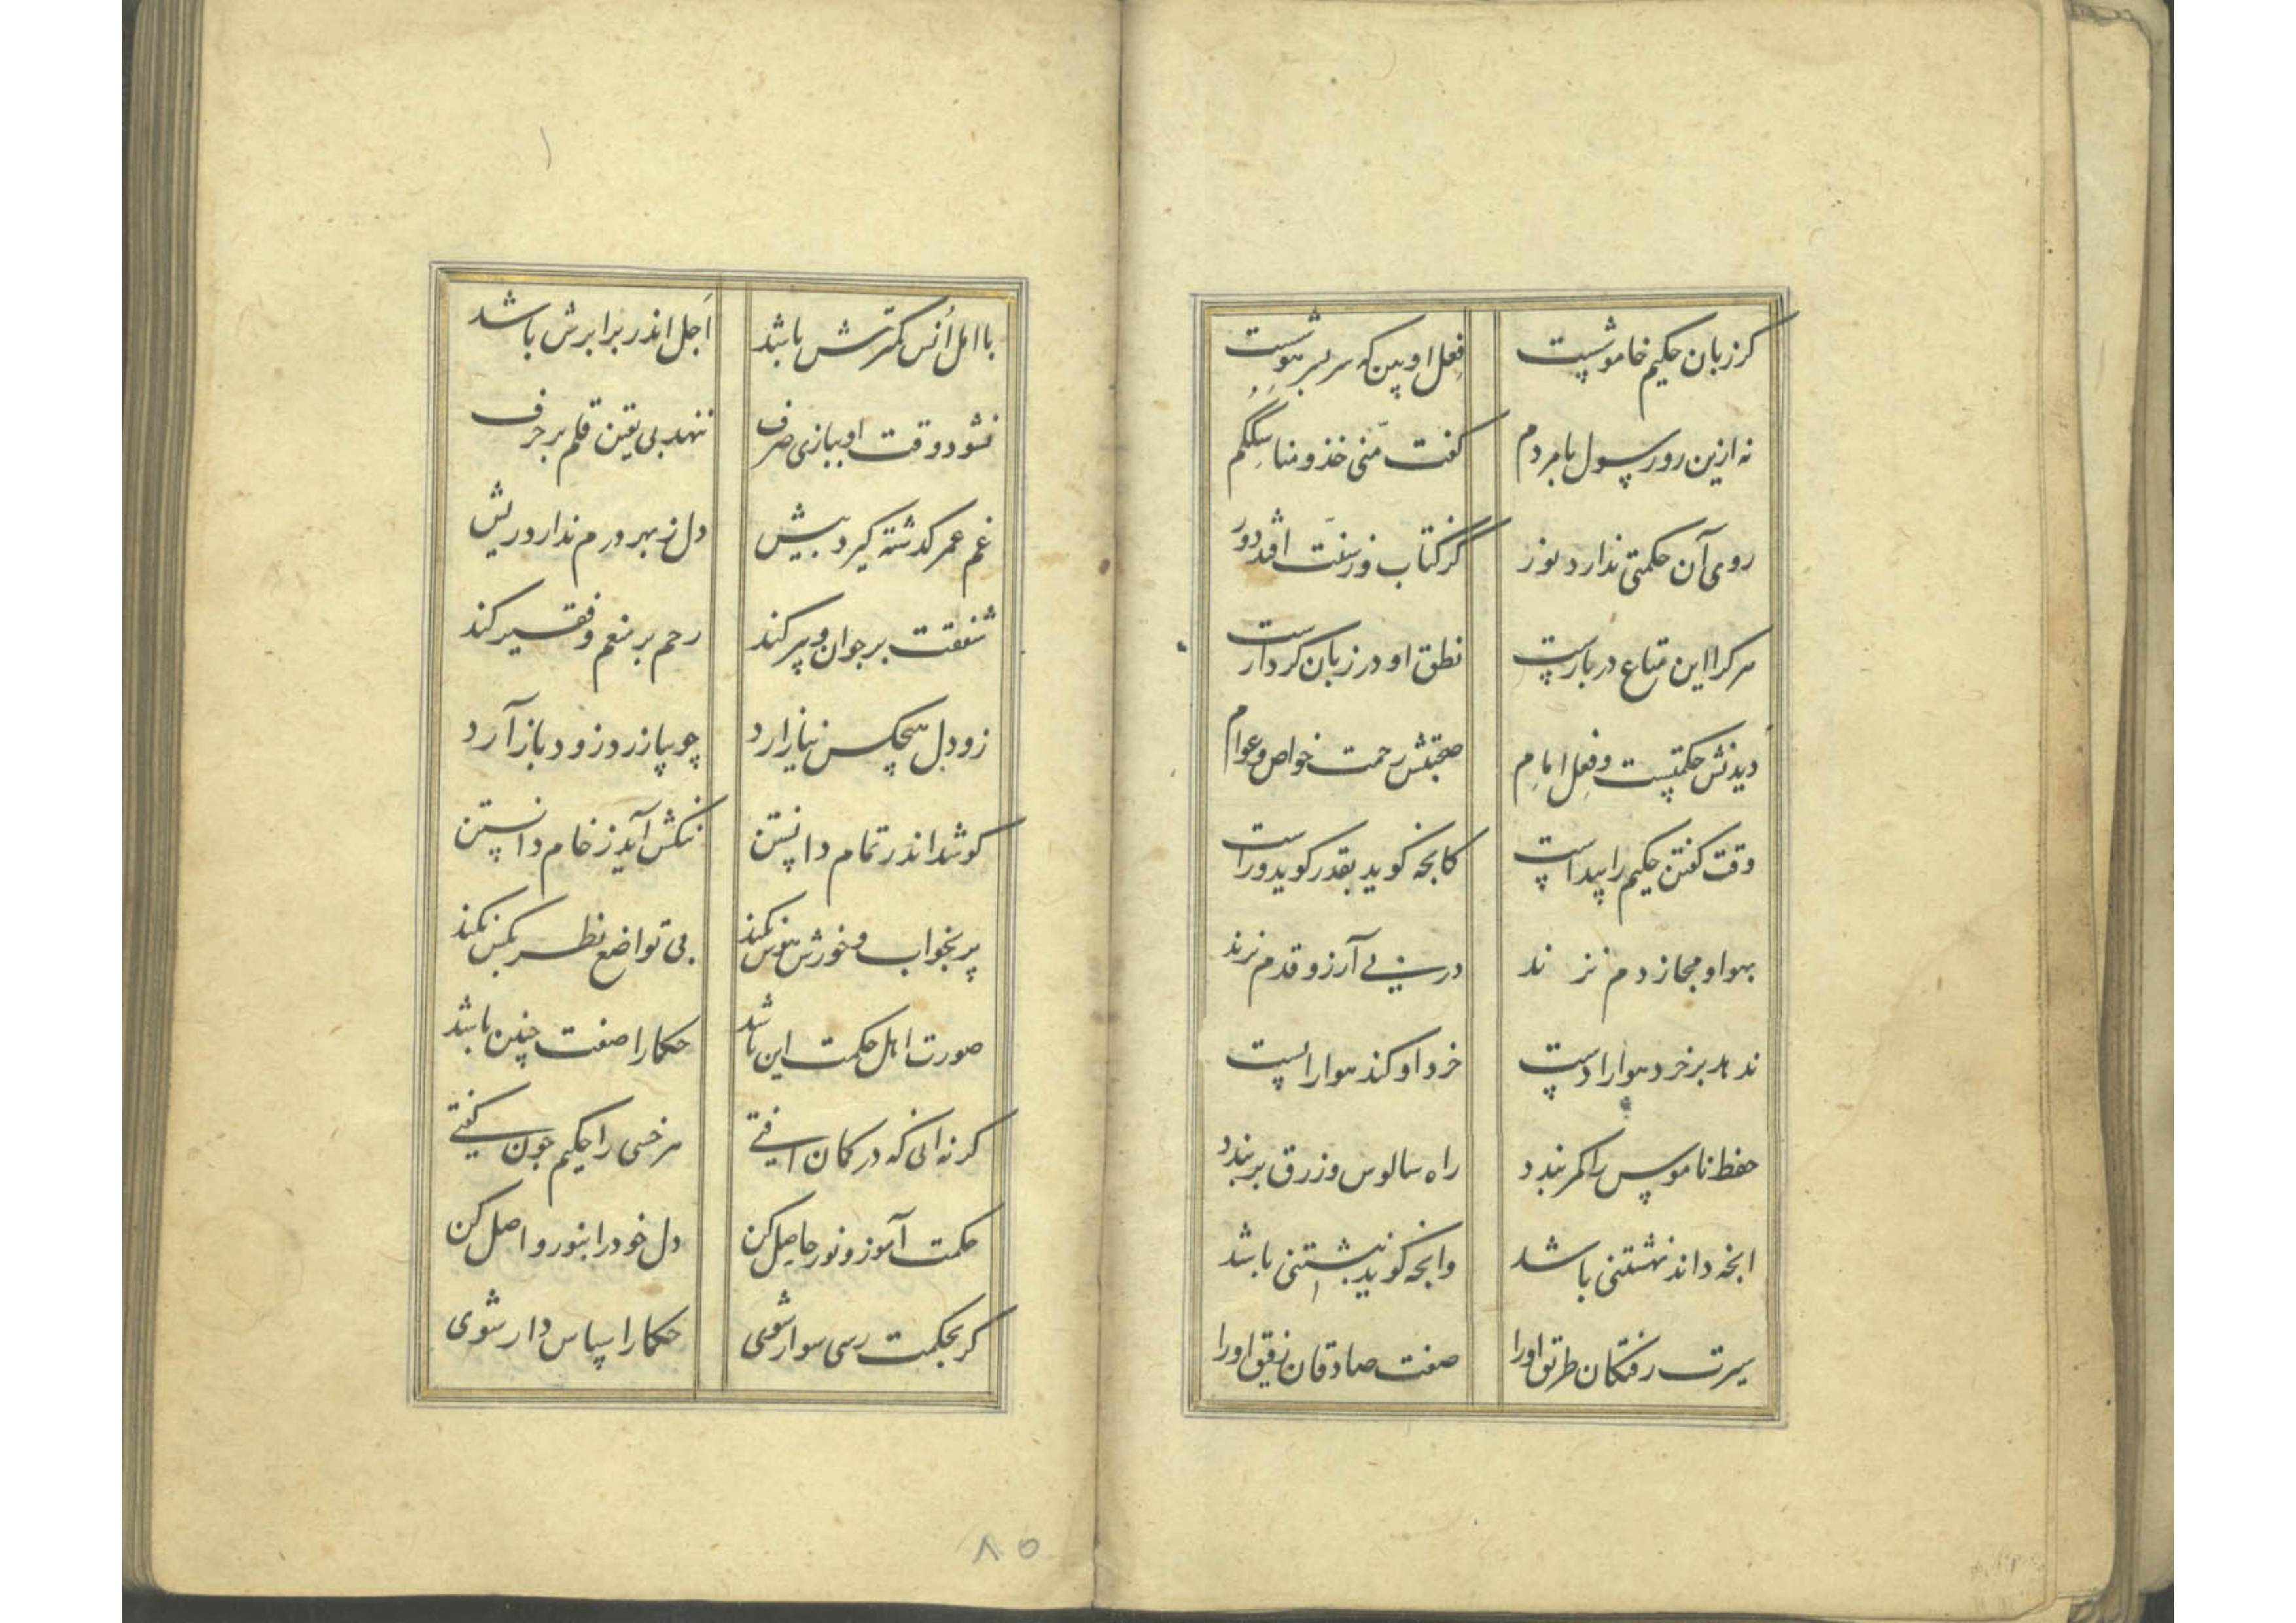 کر زبان حکیم خاموشست فعل او بین که سر بسر هوشست
نه ازین رو رسول با مردم کفت منّی خذو مناسککم
روی آن حکمتی ندارد نور کز کتاب و ز سنّت افتد دور
هر کرا این متاع در بارست نطق او در زبان کردارست
دیدنش حکمتست و فعل امام صحبتش رحمت خواص و عوام
وقت کفتن حکیم را پیداست کانچه کوید بقدر کوید و راست
بهوا و مجاز دم نزند در پی آرزو قدم نزند
ندهد بر خرد هوا را دست خرد او کند هوا را پست
حفظ ناموس را کمر بندد راه سالوس و زرق بر بندد
انچه داند نهشتنی باشد وانچه کوید نبشتنی باشد
سیرت رفتکان طریق او را صفت صادقان رفیق او را
با امل اُنس کمترش باشد اَجل اندر برابرش باشد
نشود وقت او ببازی صرف ننهد بی یقین قلم بر حرف
غم عمر کذشته کیرد بیش دل ز بهر درم ندارد ریش
شفقت بر جوان و پیر کند رحم بر منعم و فقیر کند
زود دل هیچکس نیازارد چو بیازرد زود باز آرد
کوشد اندر تمام دانستن ننکش آید ز خام دانستن
پر بخواب و خورش هوس نکند بی تواضع نظر بکس نکند
صورت اهل حکمت این باشد حکما را صفت چنین باشد
کر نه انی که در کمان افتی هر خسی را حکیم چون کفتی
حکمت آموز و نور حاصل کن دل خود را بنور واصل کن
کر بحکمت رسی سوار شوی حکما را سپاس دار شوی
۸۵